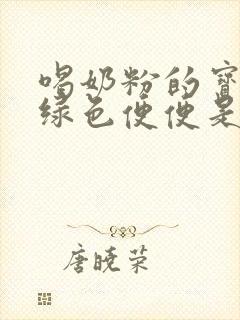 喝奶粉的宝
绿色便便是
唐晓荣